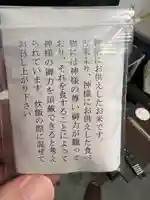 神様にお供えしたお米です。
古来より、神様にお供えした食べ
物には神様の尊い御力が籠って
おり、それを食することによって
神様の御力を頂戴できると考え
られています。炊飯の際に混ぜて
お召し上がり下さい